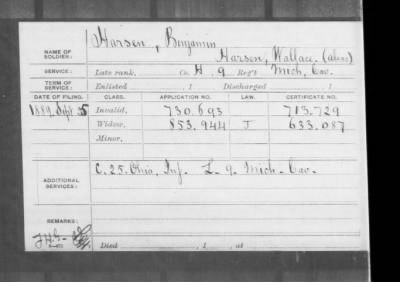 Harson, Benjamin
NAME OF SOLDIER: Harson, Wallace, (alias)
SERVICE: Late rank, Co. H, 9 Reg't Mich, Cav.
TERM OF SERVICE: Enlisted , 1 Discharged , 1
DATE OF FILING. CLASS. APPLICATION NO. LAW. CERTIFICATE NO.
1889 Sept 5 Invalid. 730.693 713.729
Widow. 853.944 J 633.087
Minor.
ADDITIONAL SERVICES: C. 25. Ohio, Inf. L. 9. Mich. Cav.
REMARKS:
Died , 1 , at